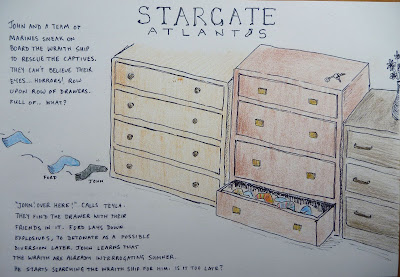 STARGATE
ATLANTIS
JOHN AND A TEAM OF
MARINES SNEAK ON
BOARD THE WRAITH SHIP
TO RESCUE THE CAPTIVES.
THEY CAN'T BELIEVE THEIR
EYES... HORRORS! ROW
UPON ROW OF DRAWERS.
FULL OF... WHAT?
FORD
JOHN
"JOHN! OVER HERE!" CALLS TEYLA.
THEY FIND THE DRAWER WITH THEIR
FRIENDS IN IT. FORD LAYS DOWN
EXPLOSIVES, TO DETONATE AS A POSSIBLE
DIVERSION LATER. JOHN LEARNS THAT
THE WRAITH ARE ALREADY INTERROGATING SUMNER.
HE STARTS SEARCHING THE WRAITH SHIP FOR HIM. IS IT TOO LATE?